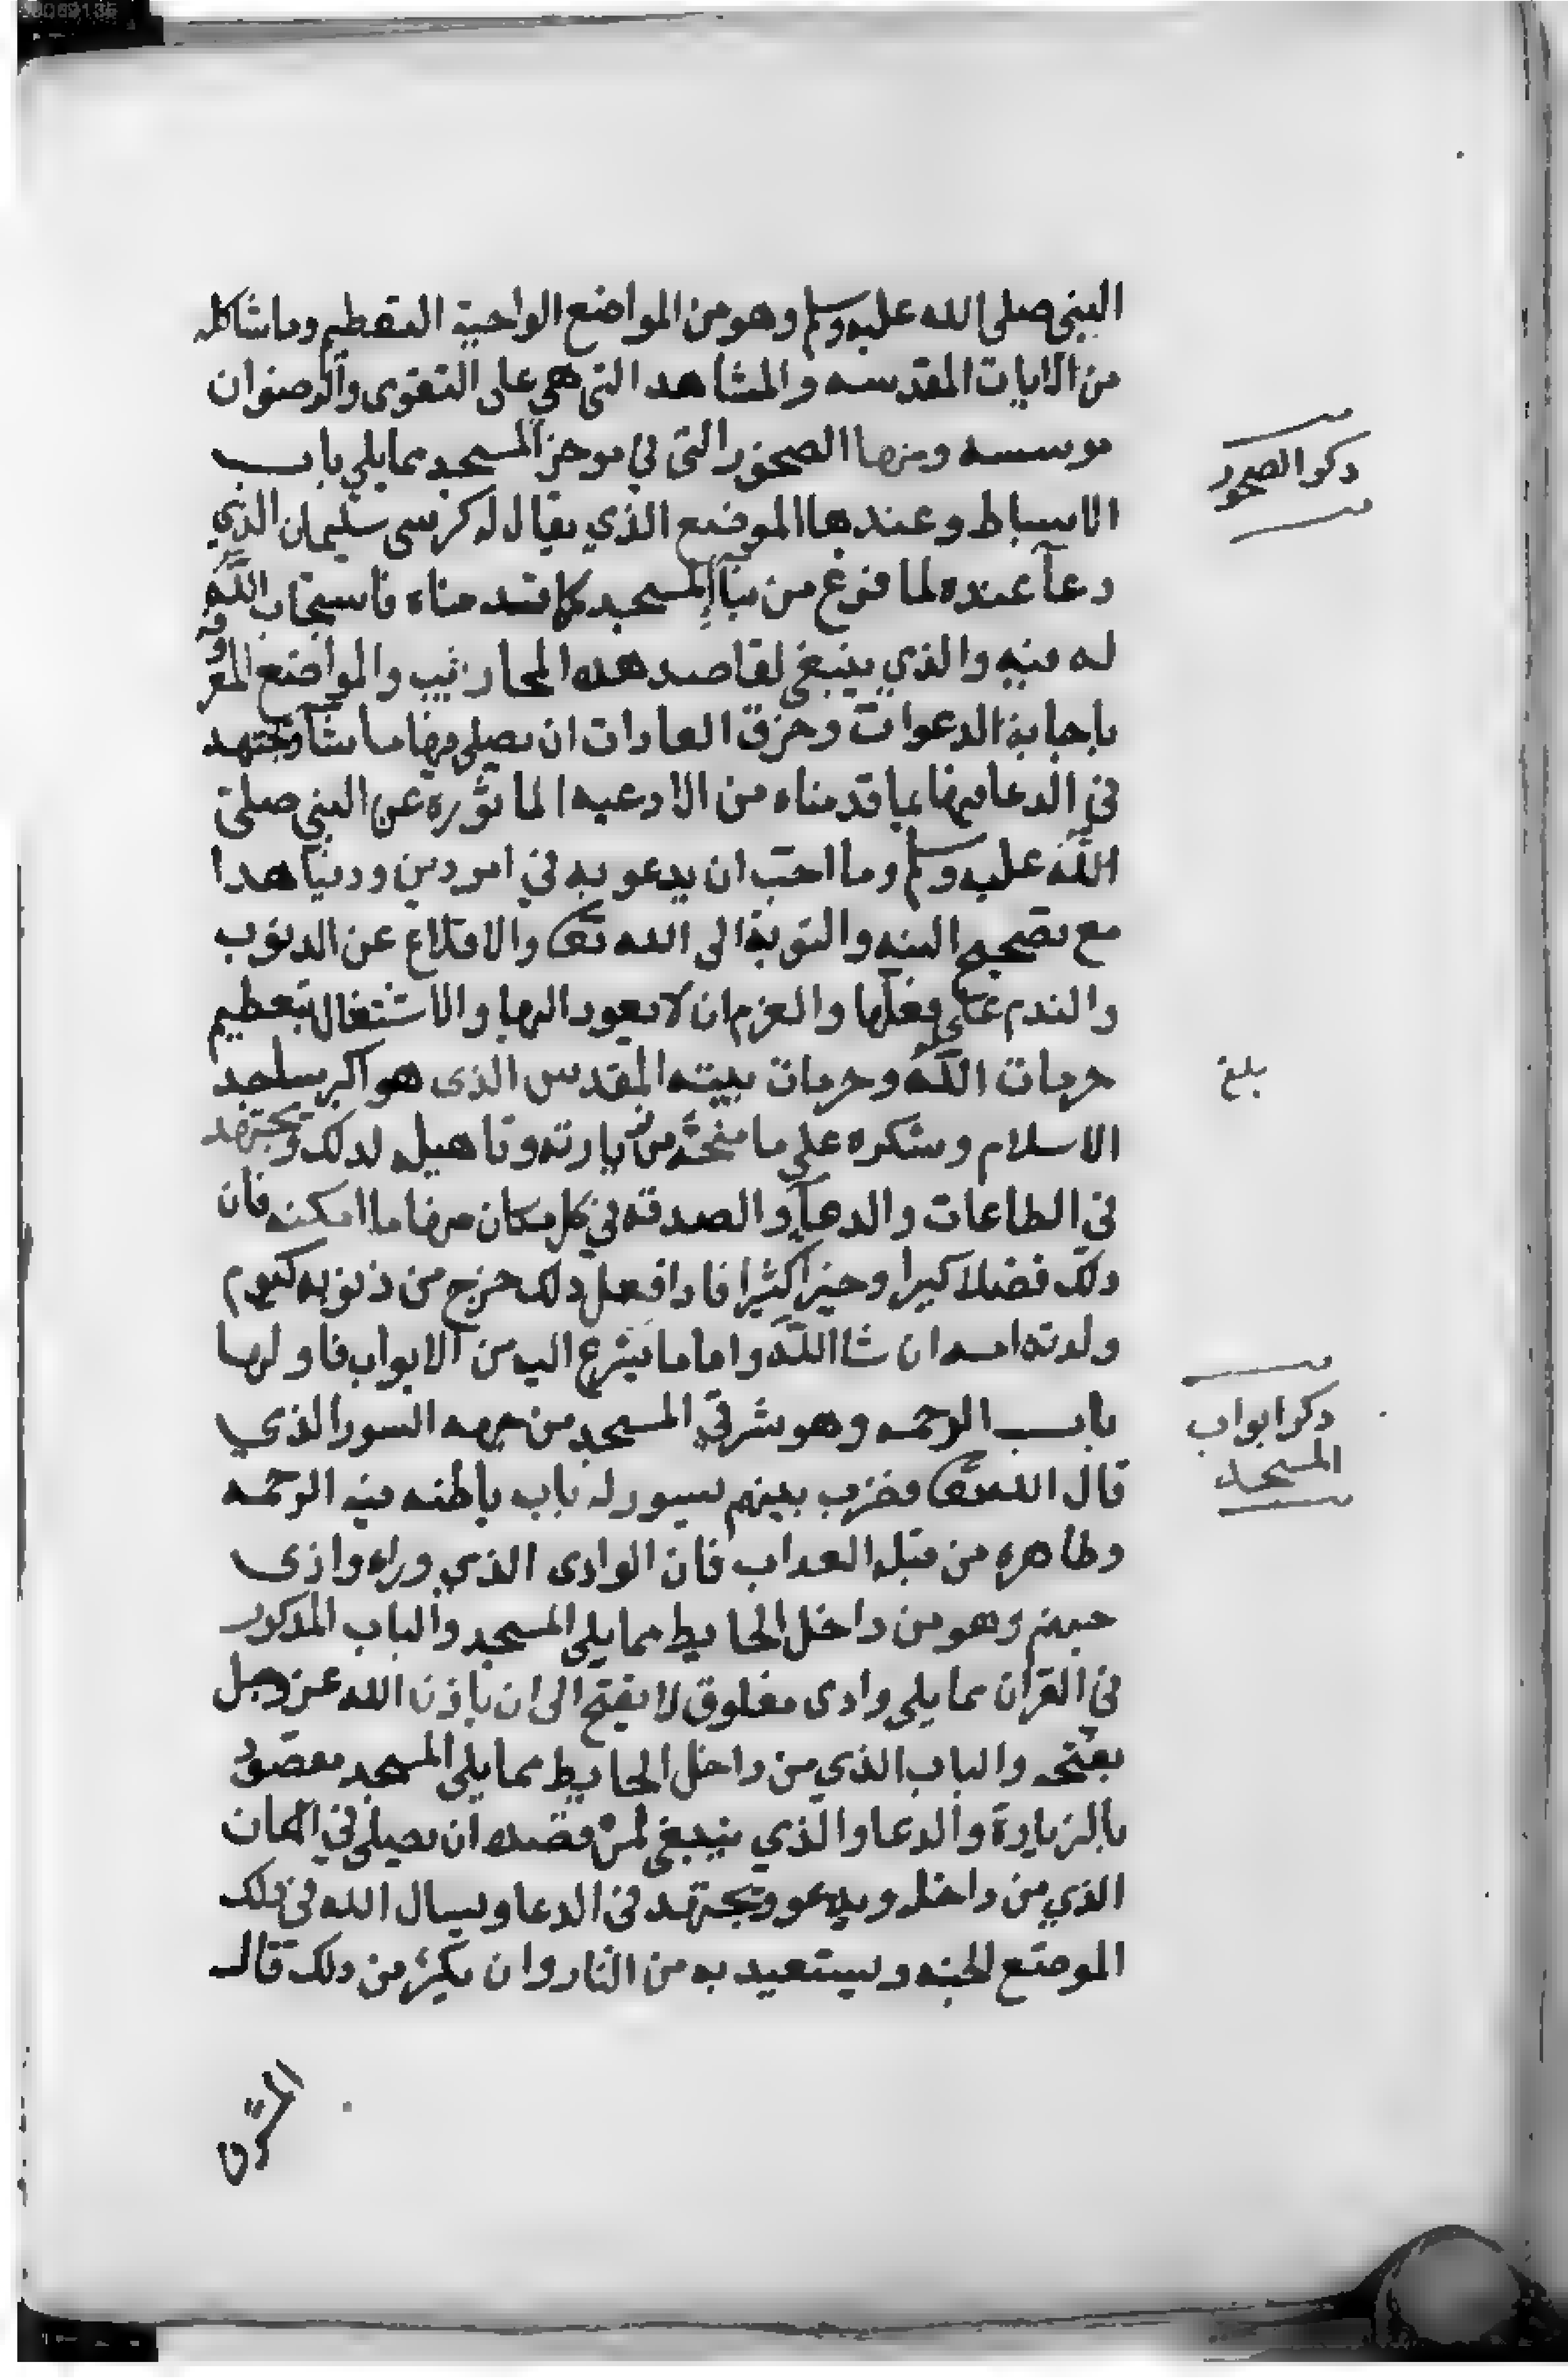 النبي صلى الله عليه وسلم وهو من المواضع الواجبة التعظيم وما شاكله
من الايات المقدسه والمشاهد التي هي على التقوى والرضوان
موسسه ومنها الصخور التي في موخر المسجد مما يلي باب
ذكر الصخور
الاسباط وعندها الموضع الذي يقال له كرسي سليمان الذي
دعآ عنده لما فرغ من بنآء المسجد كما قدمناه فاستجاب الله
له فيه والذي ينبغي لقاصد هذه المحاريب والمواضع المعروفه
باجابة الدعوات وخرق العادات ان يصلي فيها ما شآ ويجتهد
في الدعا فيها بما قدمناه من الادعيه الماثوره عن النبي صلى
الله عليه وسلم وما احب ان يدعو به في امر دين ودنيا هدا
مع تصحيح النيه والتوبة الى الله تعالى والاقلاع عن الذنوب
والندم على فعلها والعزم ان لا يعود اليها والاشتغال بتعظيم
حرمات الله وحرمات بيته المقدس الذى هو اكبر مساجد
بلغ
الاسلام وشكره على ما منحه من زيارته وتاهيله لدلك ويجتهد
في الطاعات والدعآء والصدقه في كل مكان منها ما امكنه فان
دلك فضلا كبيرا وخيرا كثيرا فادا فعل دلك خرج من ذنوبه كيوم
ولدته امه ان شا الله واما ما يشرع اليه من الابواب فاولها
باب الرحمه وهو شرقي المسجد من جهه السور الذي
ذكر ابواب
المسجد
قال الله تعالى فضرب بينهم بسور له باب باطنه فيه الرحمه
وظاهره من قبله العذاب فان الوادى الذي وراه وادى
جهنم وهو من داخل الحايط مما يلي المسجد والباب المذكور
في القران مما يلي وادى مغلوق لا يفتح الى ان ياذن الله عز وجل
بفتحه والباب الذي من داخل الحايط مما يلي المسجد مقصود
بالزيارة والدعا والذي ينبغي لمن قصده ان يصلي في المكان
الذي من داخله ويدعو ويجتهد في الدعا ويسال الله في تلك
الموضع الجنه ويستعيد به من النار وان يكثر من دلك قال